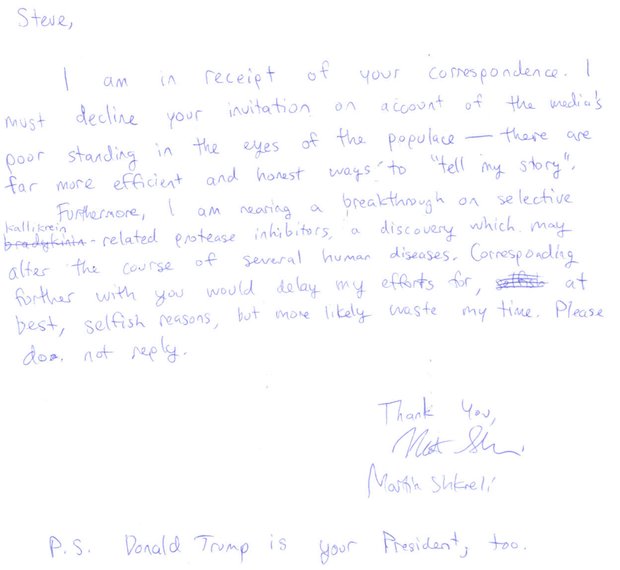 Steve,
I am in receipt of your correspondence. I
must decline your invitation on account of the media's
poor standing in the eyes of the populace — there are
far more efficient and honest ways to "tell my story".
Furthermore, I am nearing a breakthrough on selective
kallikrein
bradykinin-related protease inhibitors, a discovery which may
alter the course of several human diseases. Corresponding
further with you would delay my efforts for, selfish at
best, selfish reasons, but more likely waste my time. Please
do not reply.
Thank You,
Martin Shkreli
P.S. Donald Trump is your President, too.